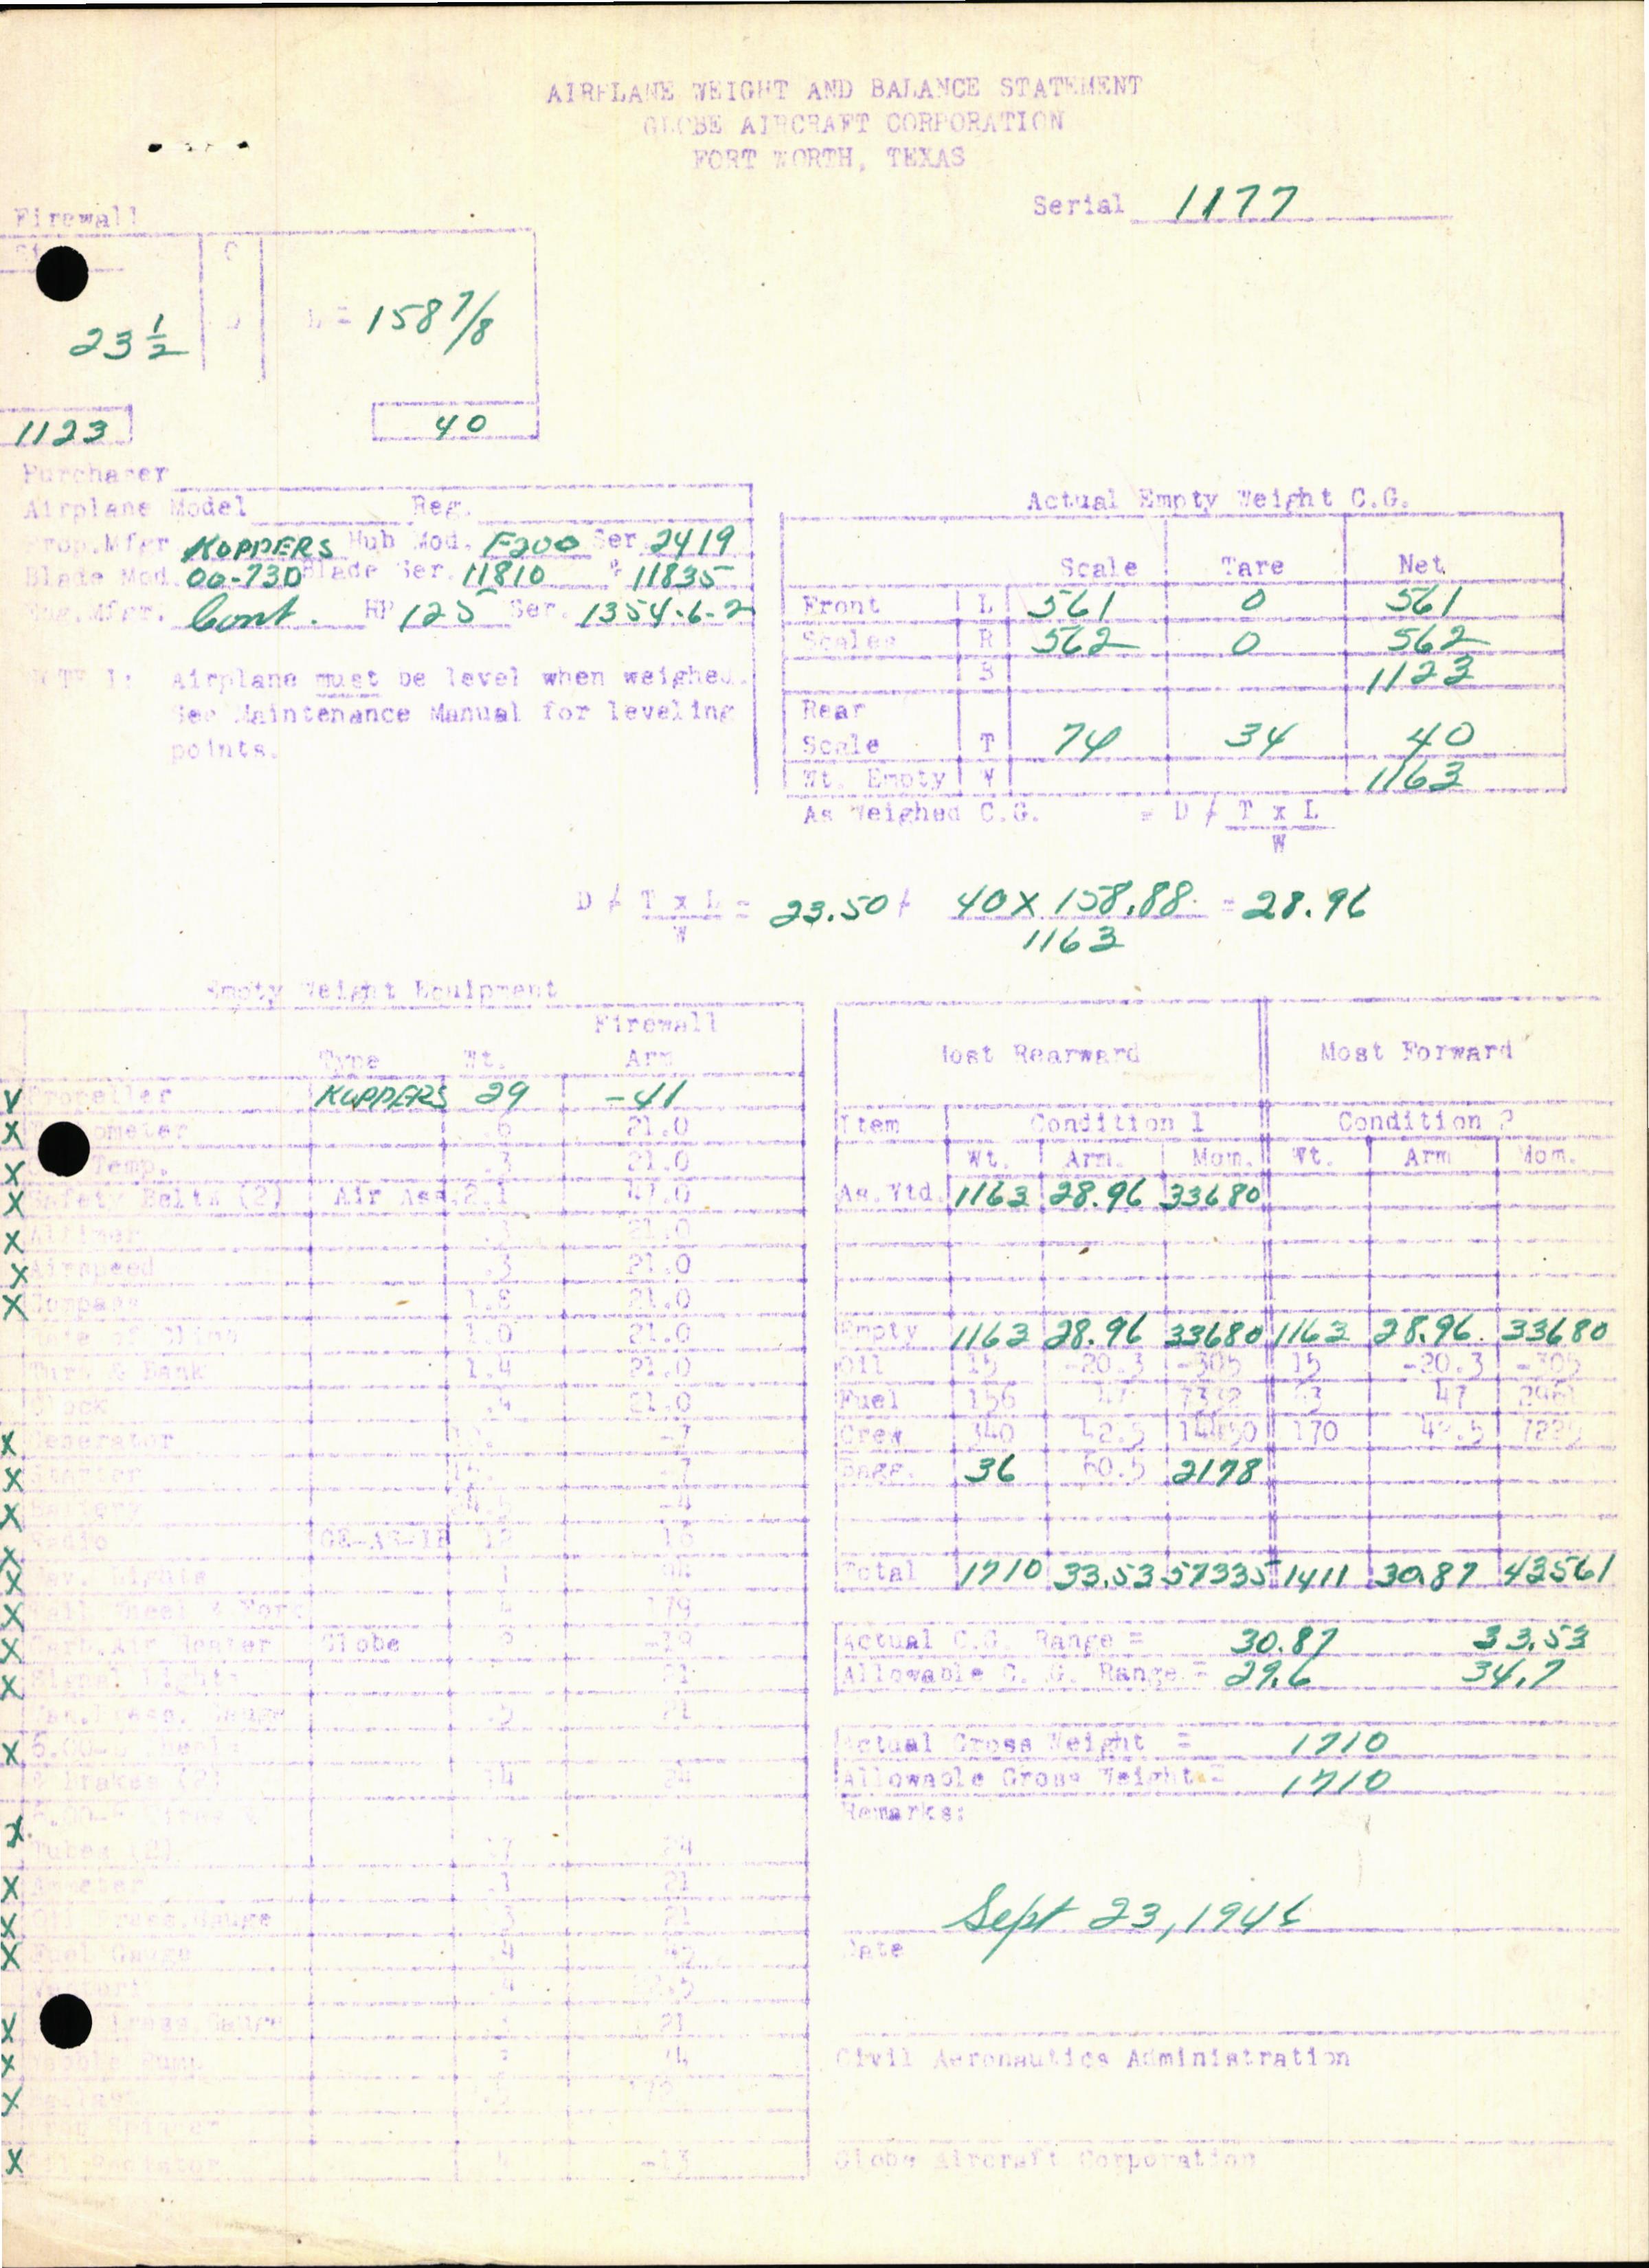 AIRPLANE WEIGHT AND BALANCE STATEMENT
GLOBE AIRCRAFT CORPORATION
FORT WORTH, TEXAS
Serial 1177
Firewall
C
23 1/2 D L = 158 7/8
1123 40
Purchaser
Airplane Model Reg.
Prop.Mfgr KOPPERS Hub Mod. F200 Ser 2419
Blade Mod. 00-73D Blade Ser. 11810 & 11835
Eng.Mfgr. Cont. HP 125 Ser. 1354-6-2
NOTE 1: Airplane must be level when weighed.
See Maintenance Manual for leveling
points.
Actual Empty Weight C.G.
Scale Tare Net
Front L 561 0 561
Scales R 562 0 562
S 1123
Rear
Scale T 74 34 40
Wt. Empty W 1163
As Weighed C.G. = D / T x L
W
D / T x L = 23.50 / 40 X 158.88 = 28.96
W 1163
Empty Weight Equipment
Firewall
Type Wt. Arm
V Propeller KOPPERS 29 -41
X .6 21.0
X Temp. .3 21.0
X Safety Belts (2) Air Ass. 2.1 47.0
X 21.0
X Airspeed .3 21.0
X Compass 1.8 21.0
Rate of Climb 1.0 21.0
Turn & Bank 1.4 21.0
Clock .4 21.0
X Generator -7
X Starter -7
X Battery -4
Radio GE-AS-1B 12 16
X Nav. Lights
X Tail Wheel & Fork 179
X Carb.Air Heater Globe -19
X Signal Lights 21
Man.Press. Gauge .5 21
X
& Brakes (2) 14 24
X
Tubes (2) 17 24
X Ammeter .1 21
X Oil Press.Gauge 21
X Fuel Gauge .4
Venturi .4
V Press.Gauge 21
X Pump
X
X Oil Radiator -13
Most Rearward Most Forward
Item Condition 1 Condition 2
Wt. Arm. Mom. Wt. Arm Mom.
As.Wtd. 1163 28.96 33680
Empty 1163 28.96 33680 1163 28.96 33680
Oil 15 -20.3 -305 15 -20.3 -305
Fuel 156 47 7332 63 47 2961
Crew 340 42.5 14450 170 42.5 7225
Bagg. 36 60.5 2178
Total 1710 33.53 57335 1411 30.87 43561
Actual C.G. Range = 30.87 33.53
Allowable C. G. Range = 29.6 34.7
Actual Gross Weight = 1710
Allowable Gross Weight = 1710
Remarks:
Sept 23, 1946
Date
Civil Aeronautics Administration
Globe Aircraft Corporation